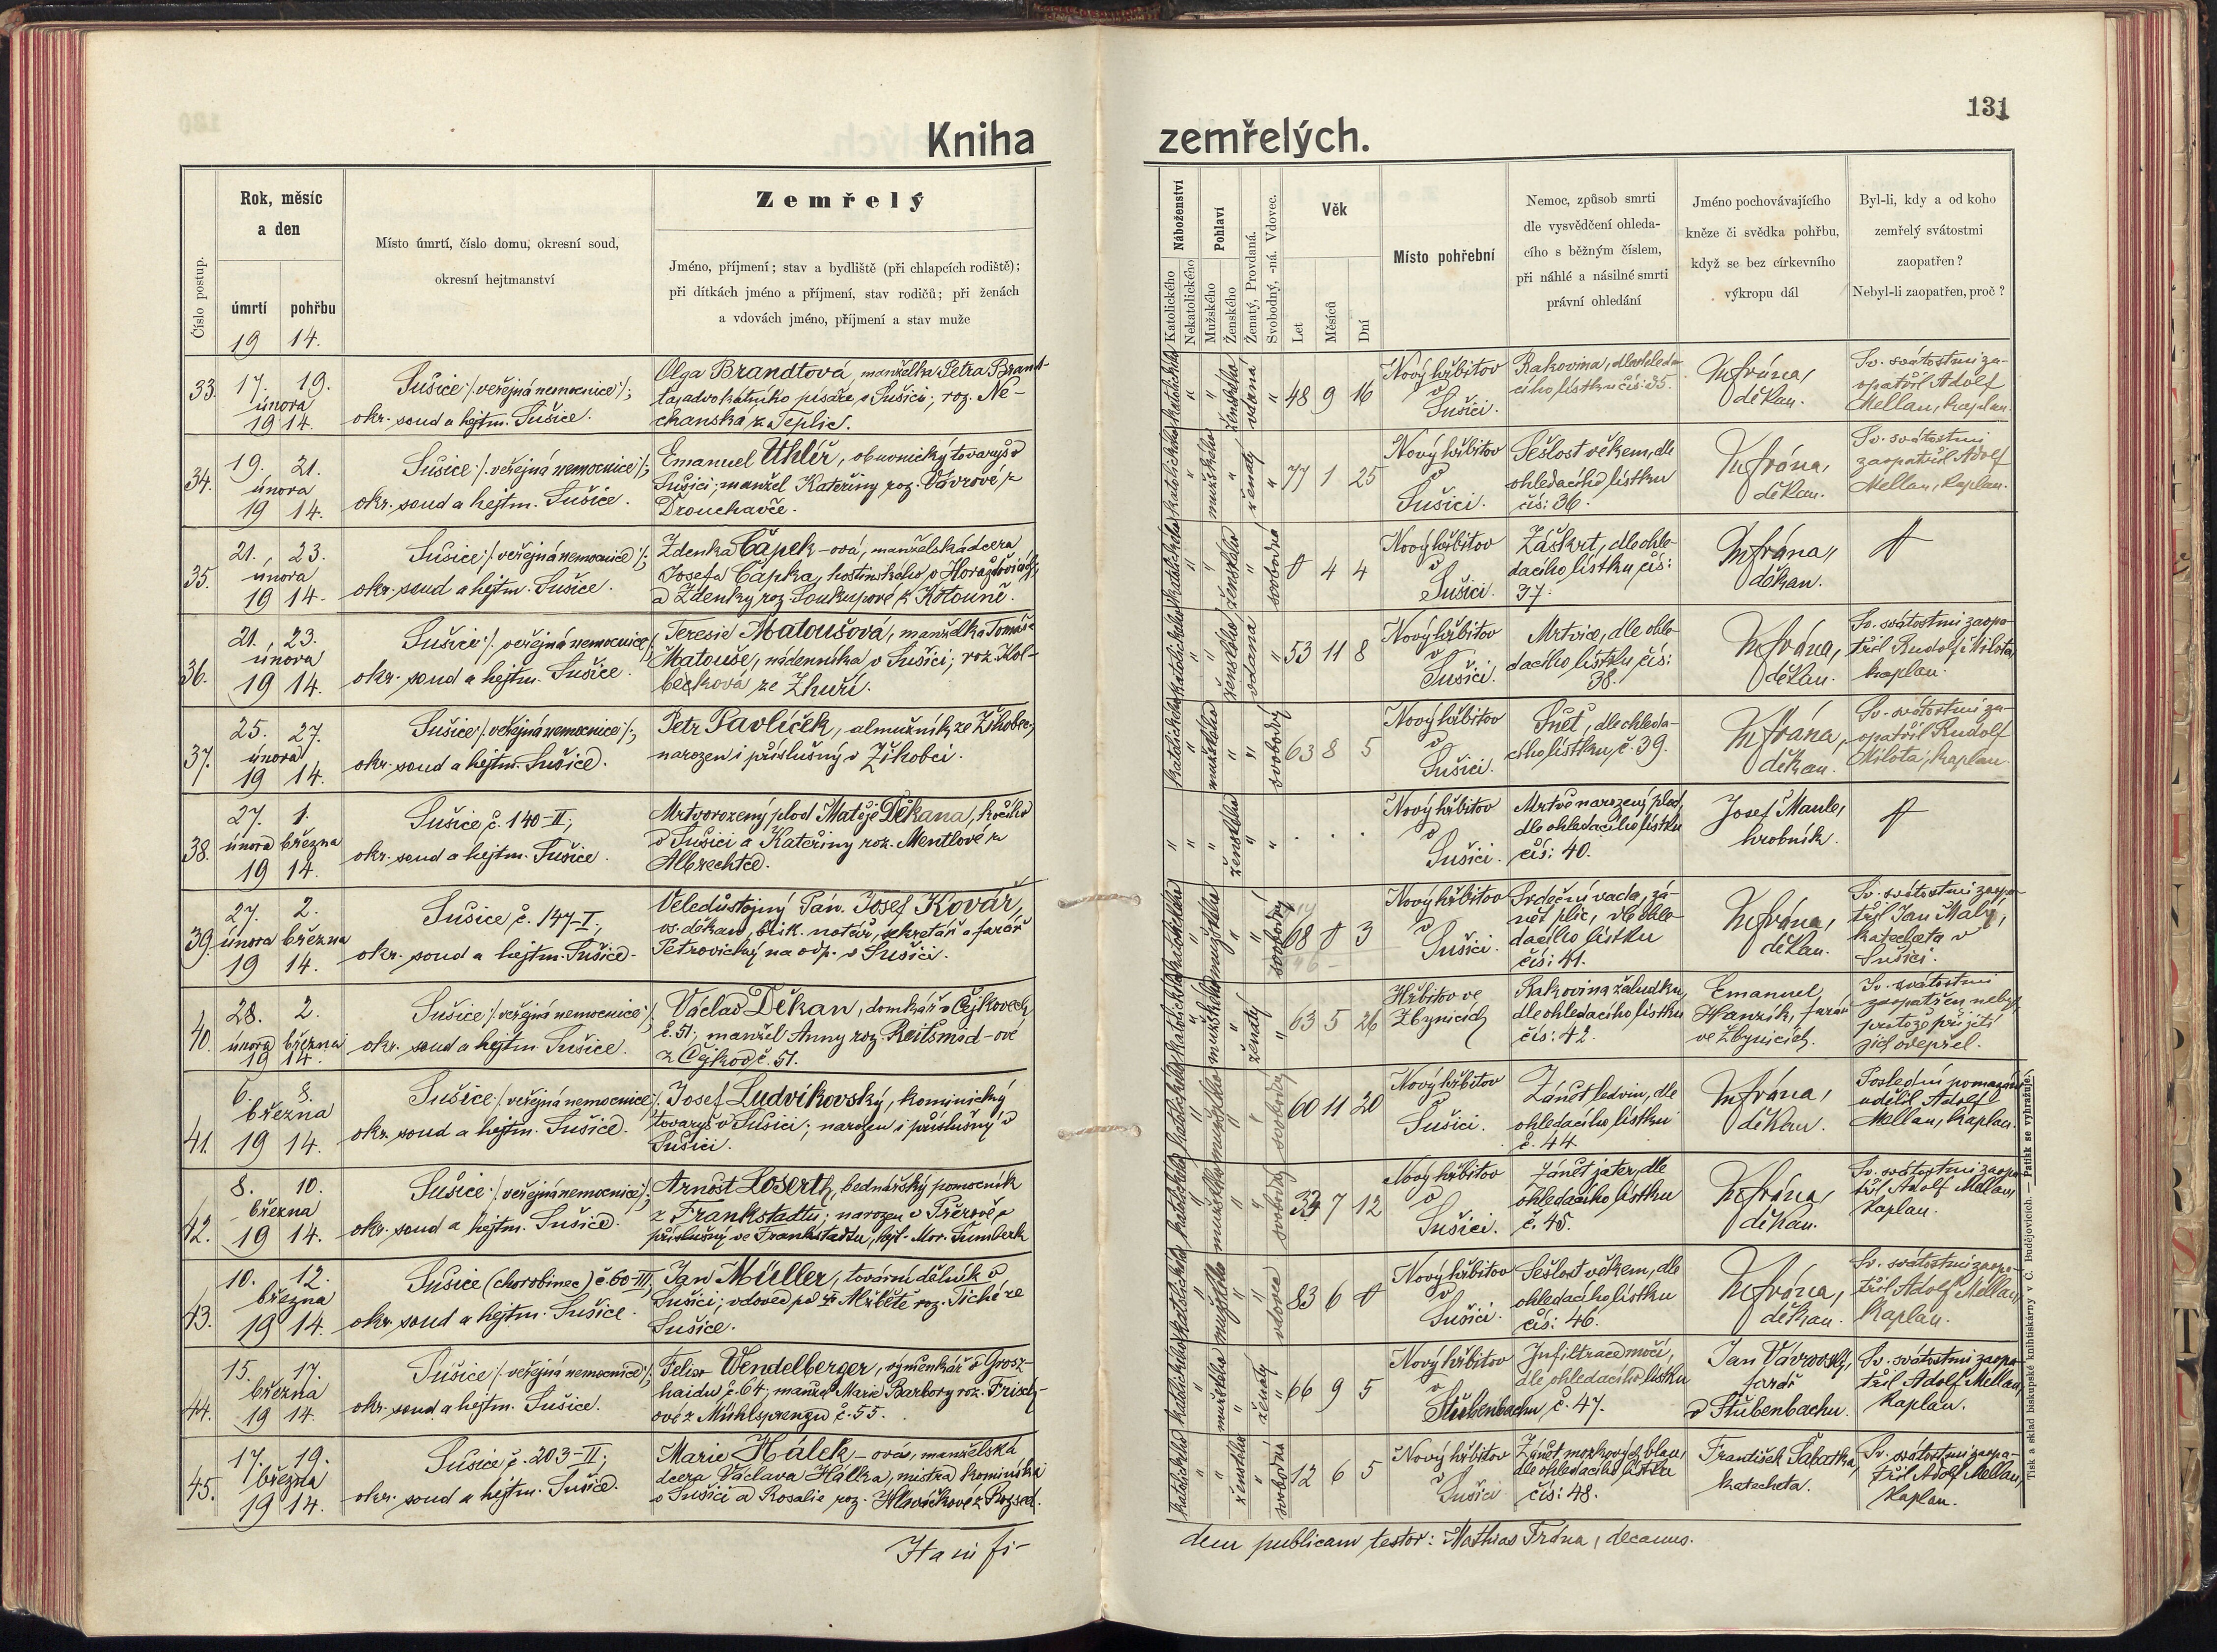 131
Kniha zemřelých.
Číslo postup.
Rok, měsíc
a den
úmrtí pohřbu
19 14.
Místo úmrtí, číslo domu, okresní soud,
okresní hejtmanství
Zemřelý
Jméno, příjmení; stav a bydliště (při chlapcích rodiště);
při dítkách jméno a příjmení, stav rodičů; při ženách
a vdovách jméno, příjmení a stav muže
Náboženství
Katolického
Nekatolického
Pohlaví
Mužského
Ženského
Ženatý, Provdaná.
Svobodný, -ná. Vdovec.
Věk
Let
Měsíců
Dní
Místo pohřební
Nemoc, způsob smrti
dle vysvědčení ohleda-
cího s běžným číslem,
při náhlé a násilné smrti
právní ohledání
Jméno pochovávajícího
kněze či svědka pohřbu,
když se bez církevního
výkropu dál
Byl-li, kdy a od koho
zemřelý svátostmi
zaopatřen?
Nebyl-li zaopatřen, proč?
33.
17. 19.
února
19 14.
Sušice /: veřejná nemocnice :/;
okr. soud a hejtm. Sušice.
Olga Brandtová, manželka Petra Brand-
ta, advokátního písaře v Sušici; roz. Ne-
chanská z Teplic.
katolického " " ženského vdaná "
48 9 16
Nový hřbitov
v
Sušici.
Rakovina, dle ohleda-
cího lístku čís: 35.
M. Frána,
děkan.
Sv. svátostmi za-
opatřil Adolf
Mellan, kaplan.
34.
19. 21.
února
19 14.
Sušice /: veřejná nemocnice :/;
okr. soud a hejtm. Sušice.
Emanuel Uhlíř, obuvnický tovaryš v
Sušici; manžel Kateřiny roz. Vávrové z
Drouhavče.
katolického " mužského " ženatý "
77 1 25
Nový hřbitov
v
Sušici.
Sešlost věkem, dle
ohledacího lístku
čís: 36.
M. Frána,
děkan.
Sv. svátostmi
zaopatřil Adolf
Mellan, kaplan.
35.
21. 23.
února
19 14.
Sušice /: veřejná nemocnice :/;
okr. soud a hejtm. Sušice.
Zdenka Čápek-ová, manželská dcera
Josefa Čápka, hostinského v Horažďovicích
a Zdenky roz. Soukupové z Kotouně.
katolického " " ženského " svobodná
0 4 4
Nový hřbitov
v
Sušici.
Záškrt, dle ohle-
dacího lístku čís:
37.
M. Frána,
děkan.
36.
21. 23.
února
19 14.
Sušice /: veřejná nemocnice :/;
okr. soud a hejtm. Sušice.
Teresie Matoušová, manželka Tomáše
Matouše, nádenníka v Sušici; roz. Kol-
becková ze Zhůří.
katolického " " ženského vdaná "
53 11 8
Nový hřbitov
v
Sušici.
Mrtvice, dle ohle-
dacího lístku čís:
38.
M. Frána,
děkan.
Sv. svátostmi zaopa-
třil Rudolf Milota,
kaplan.
37.
25. 27.
února
19 14.
Sušice /: veřejná nemocnice :/;
okr. soud a hejtm. Sušice.
Petr Pavlíček, almužník ze Žihobec,
narozen i příslušný v Žihobci.
katolického " mužského " " svobodný
63 8 5
Nový hřbitov
v
Sušici.
Sněť, dle ohleda-
cího lístku č. 39.
M. Frána,
děkan.
Sv. svátostmi za-
opatřil Rudolf
Milota, kaplan.
38.
27. 1.
února března
19 14.
Sušice č. 140-II;
okr. soud a hejtm. Sušice.
Mrtvorozený plod Matěje Děkana, kočího
v Sušici a Kateřiny roz. Mentlové z
Albrechtce.
" " " ženského " "
. . .
Nový hřbitov
v
Sušici.
Mrtvě narozený plod,
dle ohledacího lístku
čís: 40.
Josef Maule,
hrobník.
39.
27. 2.
února března
19 14.
Sušice č. 147-I;
okr. soud a hejtm. Sušice.
Veledůstojný Pán. Josef Kovář,
os. děkan, bisk. notář, sekretář a farář
Petrovický na odp. v Sušici.
katolického " mužského " " svobodný
68 0 3
Nový hřbitov
v
Sušici.
Srdeční vada, zá-
nět plic, dle ohle-
dacího lístku
čís: 41.
M. Frána,
děkan.
Sv. svátostmi zaopa-
třil Jan Malý,
katecheta v
Sušici.
40.
28. 2.
února března
19 14.
Sušice /: veřejná nemocnice :/
okr. soud a hejtm. Sušice.
Václav Děkan, domkář v Čejkovech
č. 51; manžel Anny roz. Reitšmid-ové
z Čejkov č. 51.
katolického " mužského " ženatý "
63 5 26
Hřbitov ve
Zbynicích
Rakovina žaludku,
dle ohledacího lístku
čís: 42.
Emanuel
Hanzík, farář
ve Zbynicích.
Sv. svátostmi
zaopatřen nebyl,
protože přijetí
jich odepřel.
41.
6. 8.
března
19 14.
Sušice /: veřejná nemocnice :/.
okr. soud a hejtm. Sušice.
Josef Ludvíkovský, kominický
tovaryš v Sušici; narozen i příslušný v
Sušici.
katolického " mužského " " svobodný
60 11 20
Nový hřbitov
v
Sušici.
Zánět ledvin, dle
ohledacího lístku
č. 44
M. Frána,
děkan.
Poslední pomazání
udělil Adolf
Mellan, kaplan.
42.
8. 10.
března
19 14.
Sušice /: veřejná nemocnice :/;
okr. soud a hejtm. Sušice.
Arnošt Loserth, bednářský pomocník
z Frankstadtu; narozen v Přerově a
příslušný ve Frankstadtu, hejt. Mor. Šumberk
katolického " mužského " " svobodný
33 7 12
Nový hřbitov
v
Sušici.
Zánět jater, dle
ohledacího lístku
č. 45.
M. Frána,
děkan.
Sv. svátostmi zaopa-
třil Adolf Mellan,
kaplan.
43.
10. 12.
března
19 14.
Sušice (chorobinec) č. 60-III,
okr. soud a hejtm. Sušice.
Jan Müller, tovární dělník v
Sušici; vdovec po Alžbětě roz. Tiché ze
Sušice.
katolického " mužského " " vdovec
83 6 0
Nový hřbitov
v
Sušici.
Sešlost věkem, dle
ohledacího lístku
čís: 46.
M. Frána,
děkan.
Sv. svátostmi zaopa-
třil Adolf Mellan,
kaplan.
44.
15. 17.
března
19 14.
Sušice /: veřejná nemocnice :/;
okr. soud a hejtm. Sušice.
Felix Wendelberger, výměnkář v Grosz-
haidu č. 64; manžel Marie Barbory roz. Frisch-
ové z Mühlsprengu č. 55.
katolického " mužského " ženatý "
66 9 5
Nový hřbitov
v
Stubenbachu
Infiltrace moči,
dle ohledacího lístku
č. 47.
Jan Vávrovský,
farář
v Stubenbachu.
Sv. svátostmi zaopa-
třil Adolf Mellan,
kaplan.
45.
17. 19.
března
19 14.
Sušice č. 203-II;
okr. soud a hejtm. Sušice.
Marie Hálek-ová, manželská
dcera Václava Hálka, mistra kominíka
v Sušici a Rosalie roz. Hlaváčkové z Rozsed.
katolického " " ženského " svobodná
12 6 5
Nový hřbitov
v
Sušici
Zánět mozkových blan,
dle ohledacího lístku
čís: 48.
František Šabatka,
katecheta.
Sv. svátostmi zaopa-
třil Adolf Mellan,
kaplan.
Hani fi-
dem publicam testor: Mathias Frána, decanus.
Tisk a sklad biskupské knihtiskárny v Č. Budějovicích. — Patisk se vyhražuje.